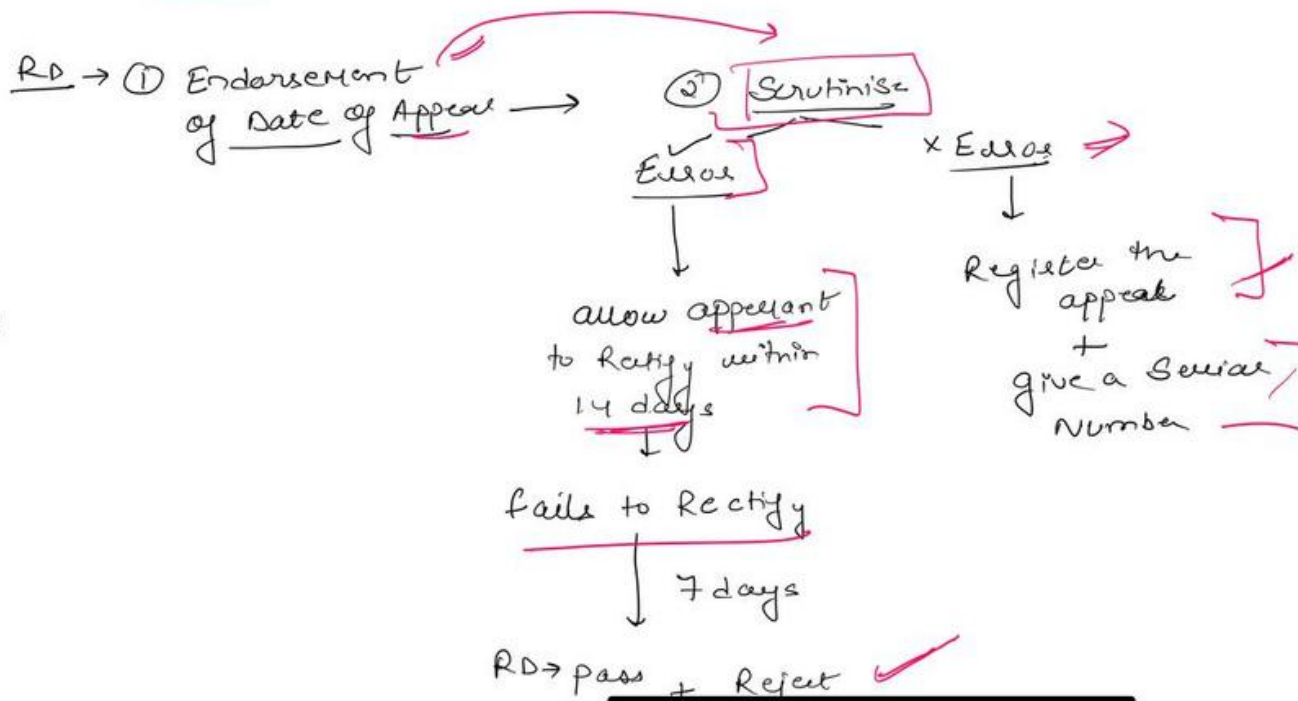 RD → ① Endorsement
of Date of Appeal →
② Scrutinise
Error
× Error
allow appellant
to Rectify within
14 days
fails to Rectify
7 days
RD → pass + Reject
Register the
appeal
+
give a Serial
Number